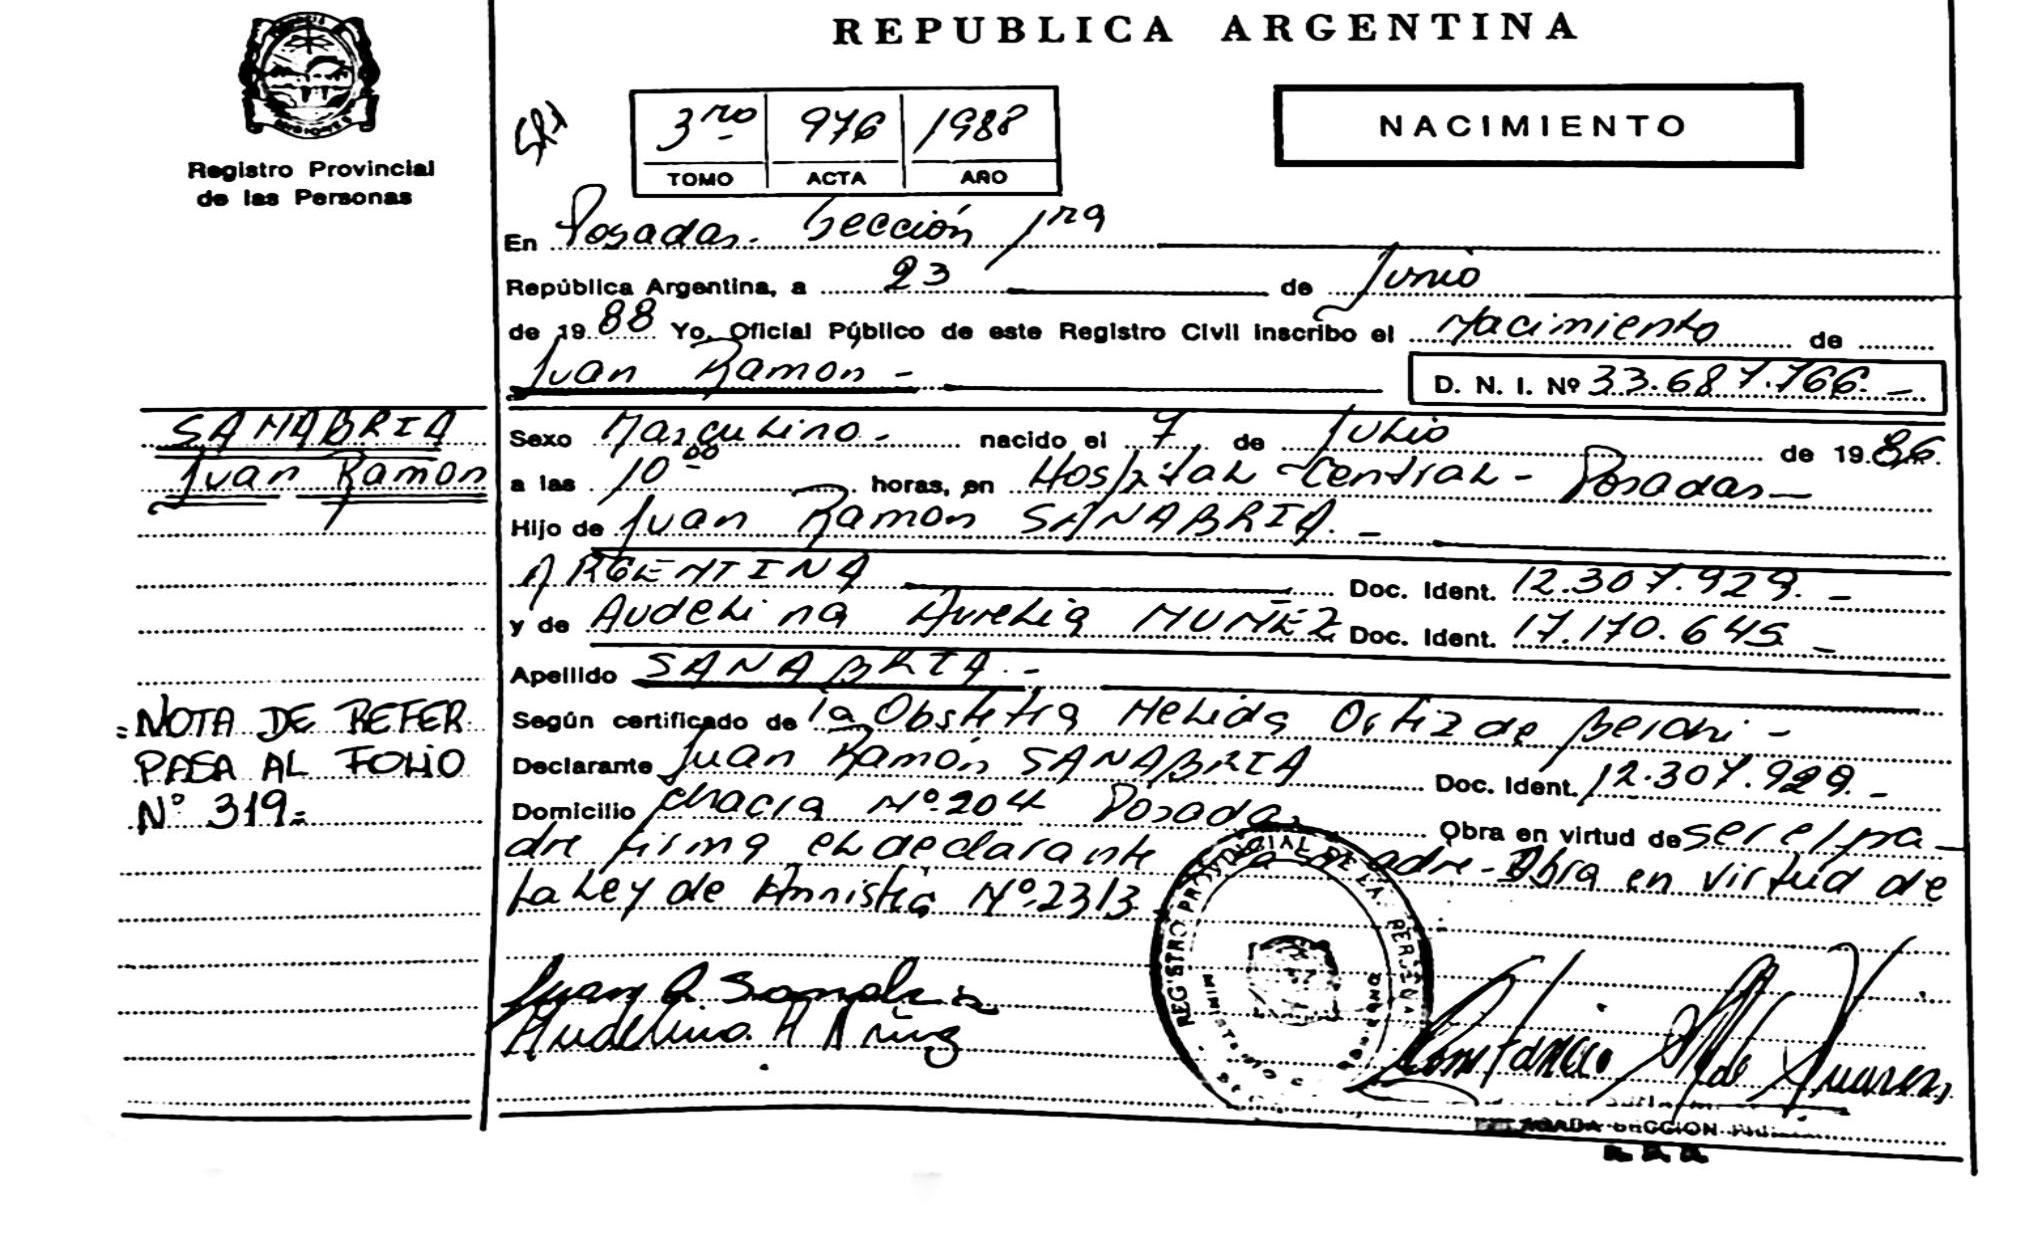 REPUBLICA ARGENTINA
MISIONES
Registro Provincial
de las Personas
3ro 976 1988
TOMO ACTA AÑO
NACIMIENTO
En Posadas. Sección 1ra
República Argentina, a 23 de Junio
de 1988 Yo, Oficial Público de este Registro Civil inscribo el Nacimiento de
Juan Ramón - D. N. I. Nº 33.687.766. -
SANABRIA
Juan Ramon
Sexo Masculino - nacido el 7 de Julio de 1986.
a las 10 00 horas, en Hospital Central - Posadas -
Hijo de Juan Ramón SANABRIA. -
ARGENTINA Doc. Ident. 12.307.929. -
y de Audelina Aurelia MUÑEZ Doc. Ident. 17.170.645 -
Apellido SANABRIA. -
NOTA DE REFER
PASA AL FOLIO
Nº 319.-
Según certificado de la Obstetra Nelida Ortiz de -
Declarante Juan Ramón SANABRIA Doc. Ident. 12.307.929. -
Domicilio chacra Nº 204 Posadas Obra en virtud de ser el pa-
dre firma el declarante madre - Obra en virtud de
La Ley de Amnistia Nº 2313
REGISTRO PROVINCIAL DE LAS PERSONAS
MINISTERIO DE GOBIERNO
Juan R Sanabria
Audelina A Nuñez